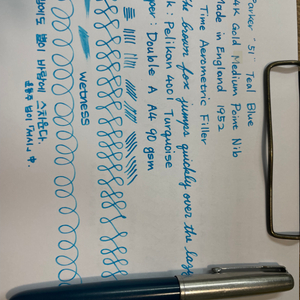 Parker "51" Teal Blue
14K Gold Medium Point Nib
Made in England 1952
Time Aerometric Filler
the brown fox jumps quickly over the lazy
k: Pelikan 4001 Turquoise
per: Double A A4 90 gsm
wetness
별이 바람에 스치운다.
윤동주 님이 中.